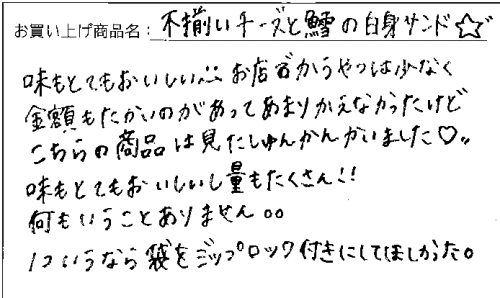 お買い上げ商品名：不揃いチーズと鱈の白身サンド☆
味もとてもおいしい:: お店でかうやつは少なく
金額もたかいのがあってあまりかえなかったけど
こちらの商品は見たしゅんかんかいました♡。。
味もとてもおいしいし量もたくさん!!
何もいうことありません。。
1ついうなら袋をジップロック付きにしてほしかった。